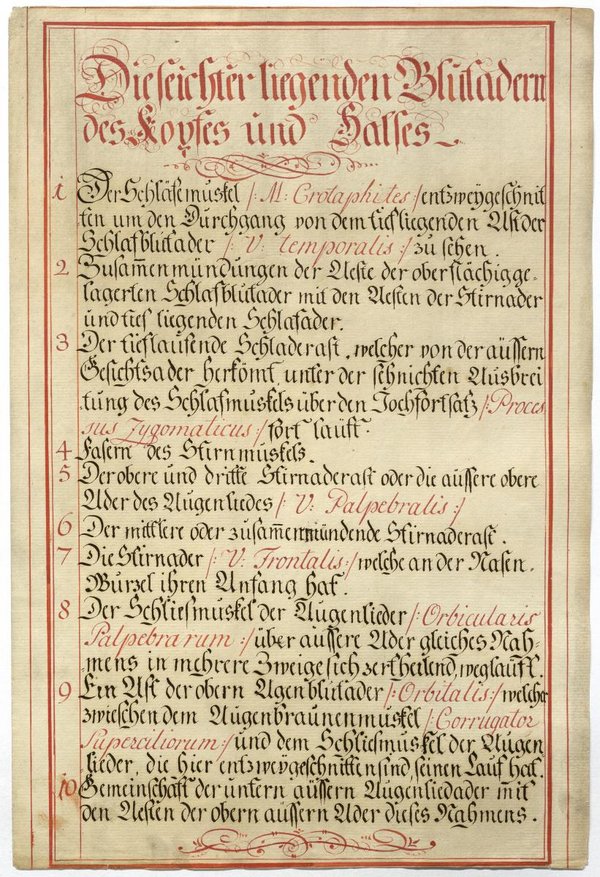 Die seichter liegenden Blutadern
des Kopfes und Halses.
1 Der Schläfemuskel /: M: Crotaphites :/ entzweygeschnit
ten um den Durchgang von dem tiefliegenden Ast der
Schlafblutader /: V: temporalis :/ zu sehen.
2 Zusam̅enmündungen der Aeste der oberflächig ge-
lagerten Schlafblutader mit den Aesten der Stirnader
und tief liegenden Schlafader.
3 Der tieflaufende Schladerast, welcher von der äussern
Gesichtsader herkömt, unter der sehnichten Ausbrei
tung des Schlafmuskels über den Jochfortsatz /: Proces
sus Zygomaticus :/ fort lauft.
4 Fasern des Stirnmuskels.
5 Der obere und dritte Stirnaderast oder die äussere obere
Ader des Augenliedes /: V: Palpebralis :/
6 Der mittlere oder zusam̅enmündende Stirnaderast.
7 Die Stirnader /: V: Frontalis :/ welche an der Nasen-
Wurzel ihren Anfang hat.
8 Der Schliesmuskel der Augenlieder /: Orbicularis
Palpebrarum :/ über äussere Ader gleiches Nah-
mens in mehrere Zweige sich zertheilend, weglauft.
9 Ein Ast der obern Agenblutader /: Orbitalis :/ welcher
zwieschen dem Augenbraunenmuskel /: Corrugator
Superciliorum :/ und dem Schliesmuskel der Augen
lieder, die hier entzweygeschnitten sind, seinen Lauf hat.
10 Gemeinschaft der untern äussern Augenliedader mit
den Aesten der obern äussern Ader dieses Nahmens.